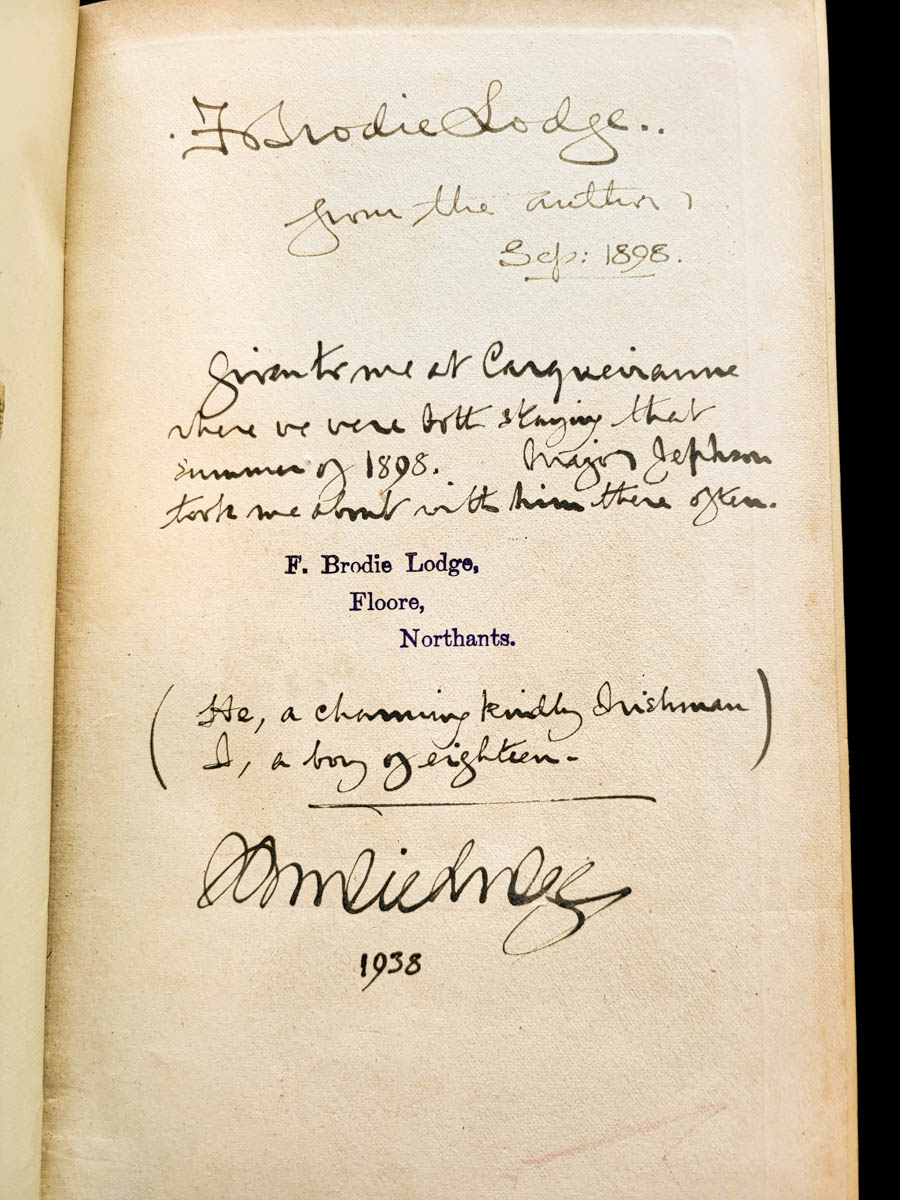 F Brodie Lodge..
from the author
Sep: 1898.
Given to me at Carqueiranne
where we were both staying that
summer of 1898. Major Jephson
took me about with him there often.
F. Brodie Lodge,
Floore,
Northants.
(He, a charming kindly Irishman
I, a boy of eighteen-)
FBrodie Lodge
1938